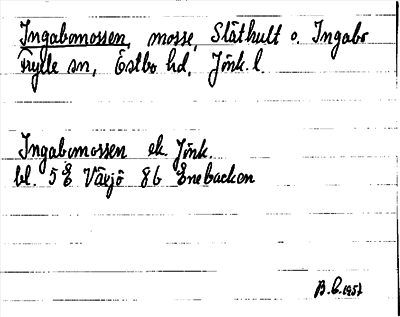 Ingabomossen, mosse, Släthult o. Ingabo
Frylle sn, Östbo hd, Jönk. l.
Ingabomossen ek. Jönk.
bl. 5 E Växjö 8b Enebacken
B.C. 1957